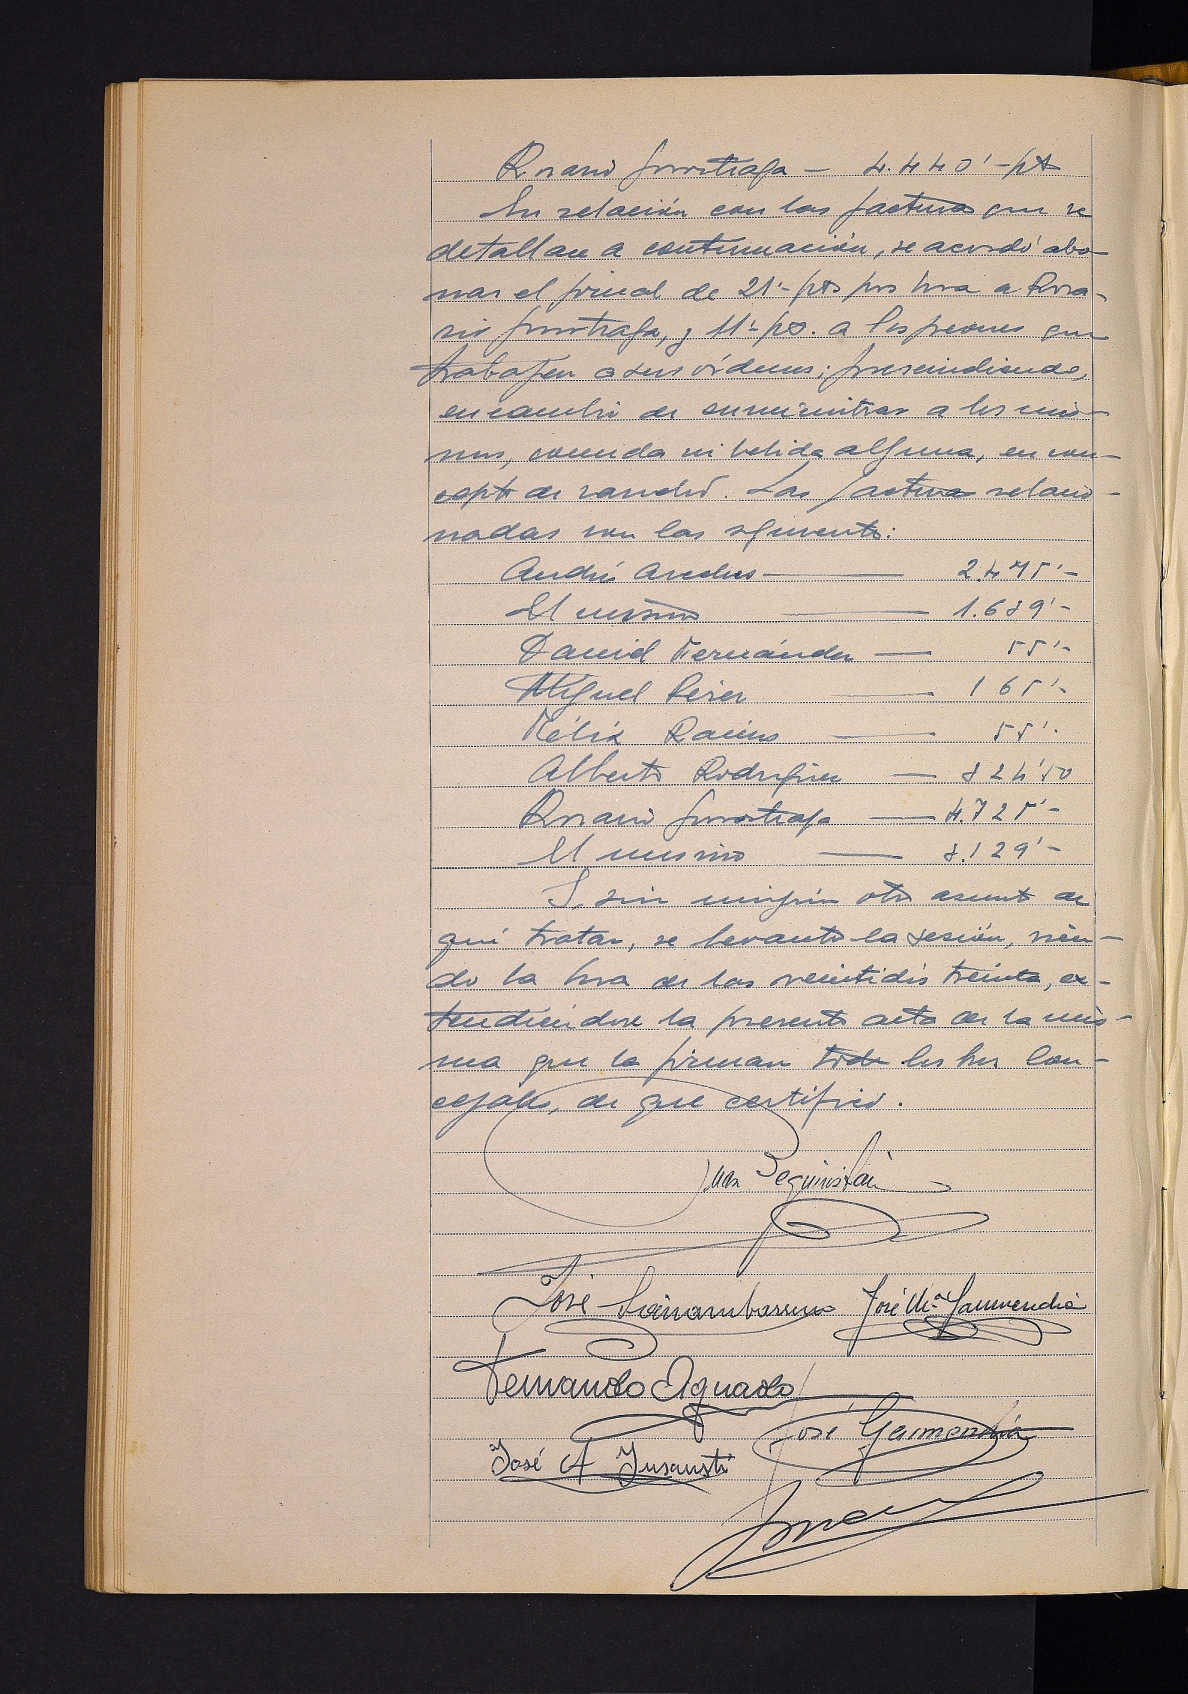 Rosario Gorrotxaga — 4.440'- pts
En relación con las facturas que se
detallan a continuación, se acordó abo-
nar el jornal de 21'- pts por hora a Rosa-
rio Gorrotxaga, y 11'- pts. a los peones que
trabajen a sus órdenes; prescindiendo,
en cambio de suministrar a los mis-
mos, comida ni bebida alguna, en con-
cepto de rancho. Las facturas relacio-
nadas son las siguientes:
Andrés — 2.475'-
El mismo — 1.689'-
Daniel Fernández — 55'-
Miguel Pérez — 165'-
Félix Ramos — 55'-
Alberto Rodríguez — 824'50
Rosario Gorrotxaga — 4.725'-
El mismo — 8.129'-
Y, sin ningún otro asunto de
qué tratar, se levantó la sesión, sien-
do la hora de las veintidós treinta, ex-
tendiéndose la presente acta de la mis-
ma que la firman todos los Sres Con-
cejales, de que certifico.
Juan Beguiristain
José José Mª Garmendia
Fernando Aguado
José Garmendia
José A Insausti